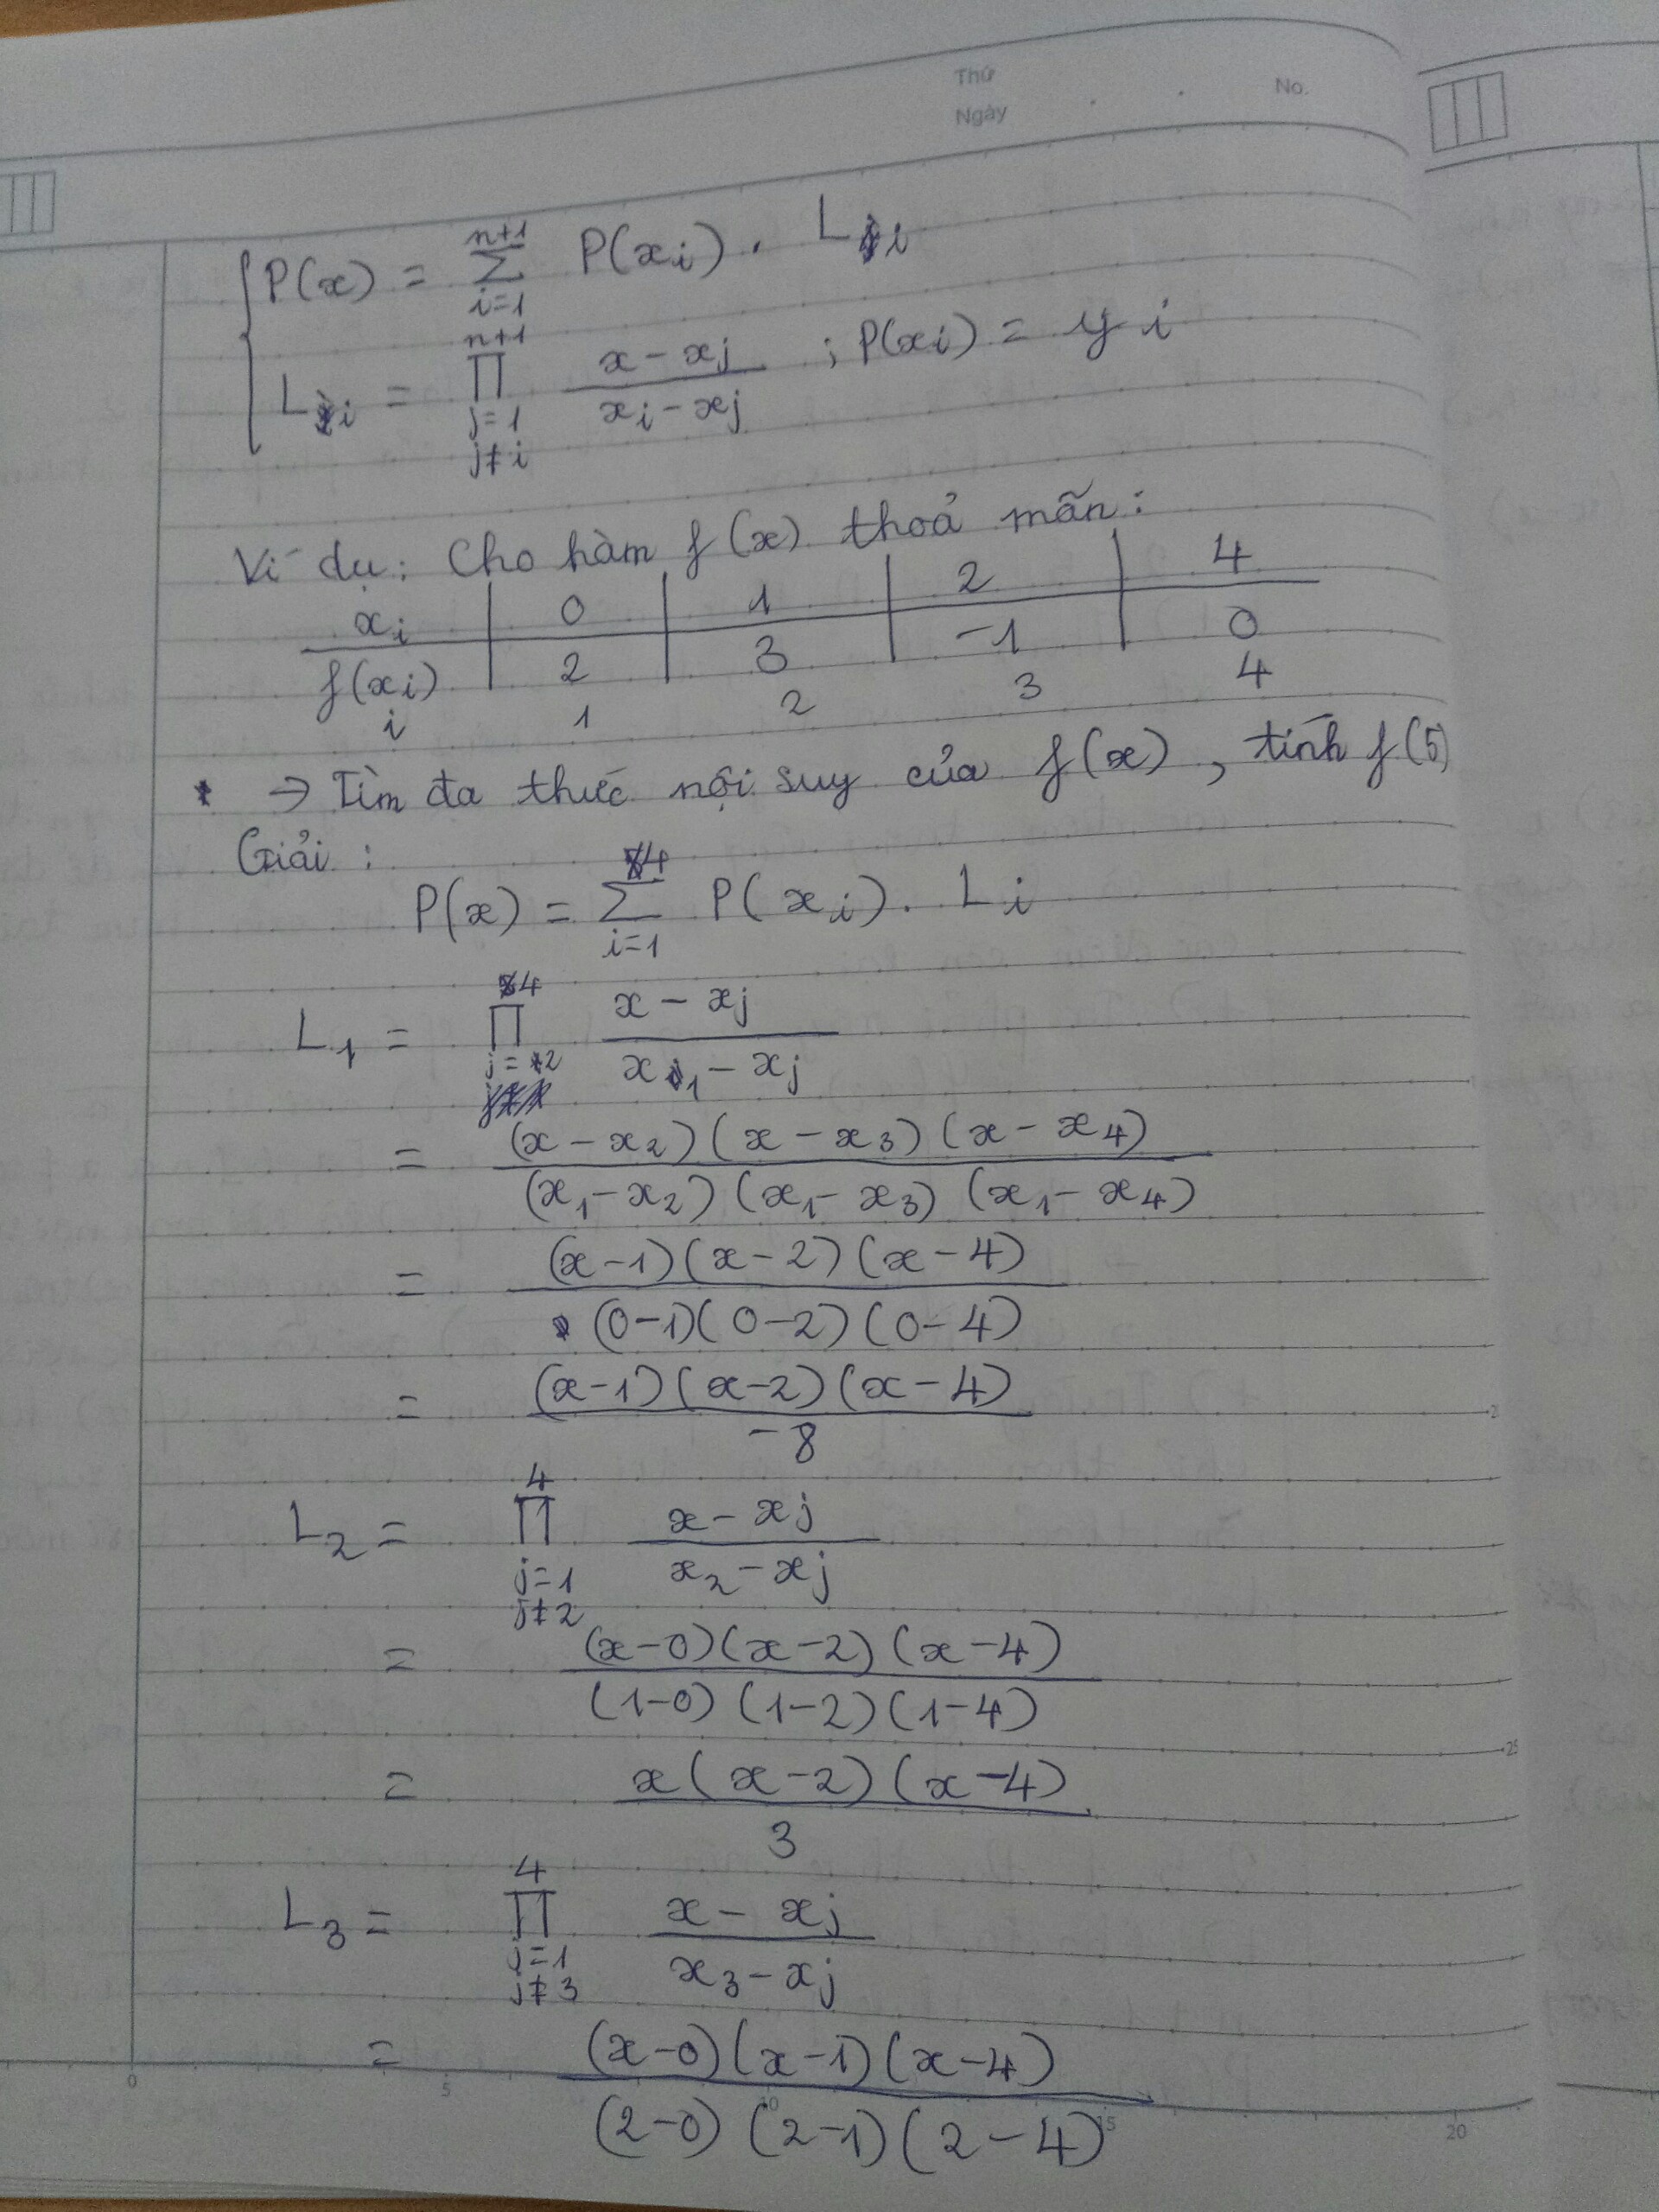 Thứ
Ngày
No.
P(x) = Σ_{i=1}^{n+1} P(x_i) . L_i
L_i = ∏_{j=1, j≠i}^{n+1} (x - x_j)/(x_i - x_j) ; P(x_i) = y_i
Ví dụ: Cho hàm f(x) thoả mãn:
x_i | 0 | 1 | 2 | 4
f(x_i) | 2 | 3 | -1 | 0
i 1 2 3 4
→ Tìm đa thức nội suy của f(x), tính f(5)
Giải:
P(x) = Σ_{i=1}^{4} P(x_i) . L_i
L_1 = ∏_{j=2}^{4} (x - x_j)/(x_1 - x_j)
= (x - x_2)(x - x_3)(x - x_4)/(x_1 - x_2)(x_1 - x_3)(x_1 - x_4)
= (x-1)(x-2)(x-4)/(0-1)(0-2)(0-4)
= (x-1)(x-2)(x-4)/-8
L_2 = ∏_{j=1, j≠2}^{4} (x - x_j)/(x_2 - x_j)
= (x-0)(x-2)(x-4)/(1-0)(1-2)(1-4)
= x(x-2)(x-4)/3
L_3 = ∏_{j=1, j≠3}^{4} (x - x_j)/(x_3 - x_j)
= (x-0)(x-1)(x-4)/(2-0)(2-1)(2-4)
0 5 10 15 20
25